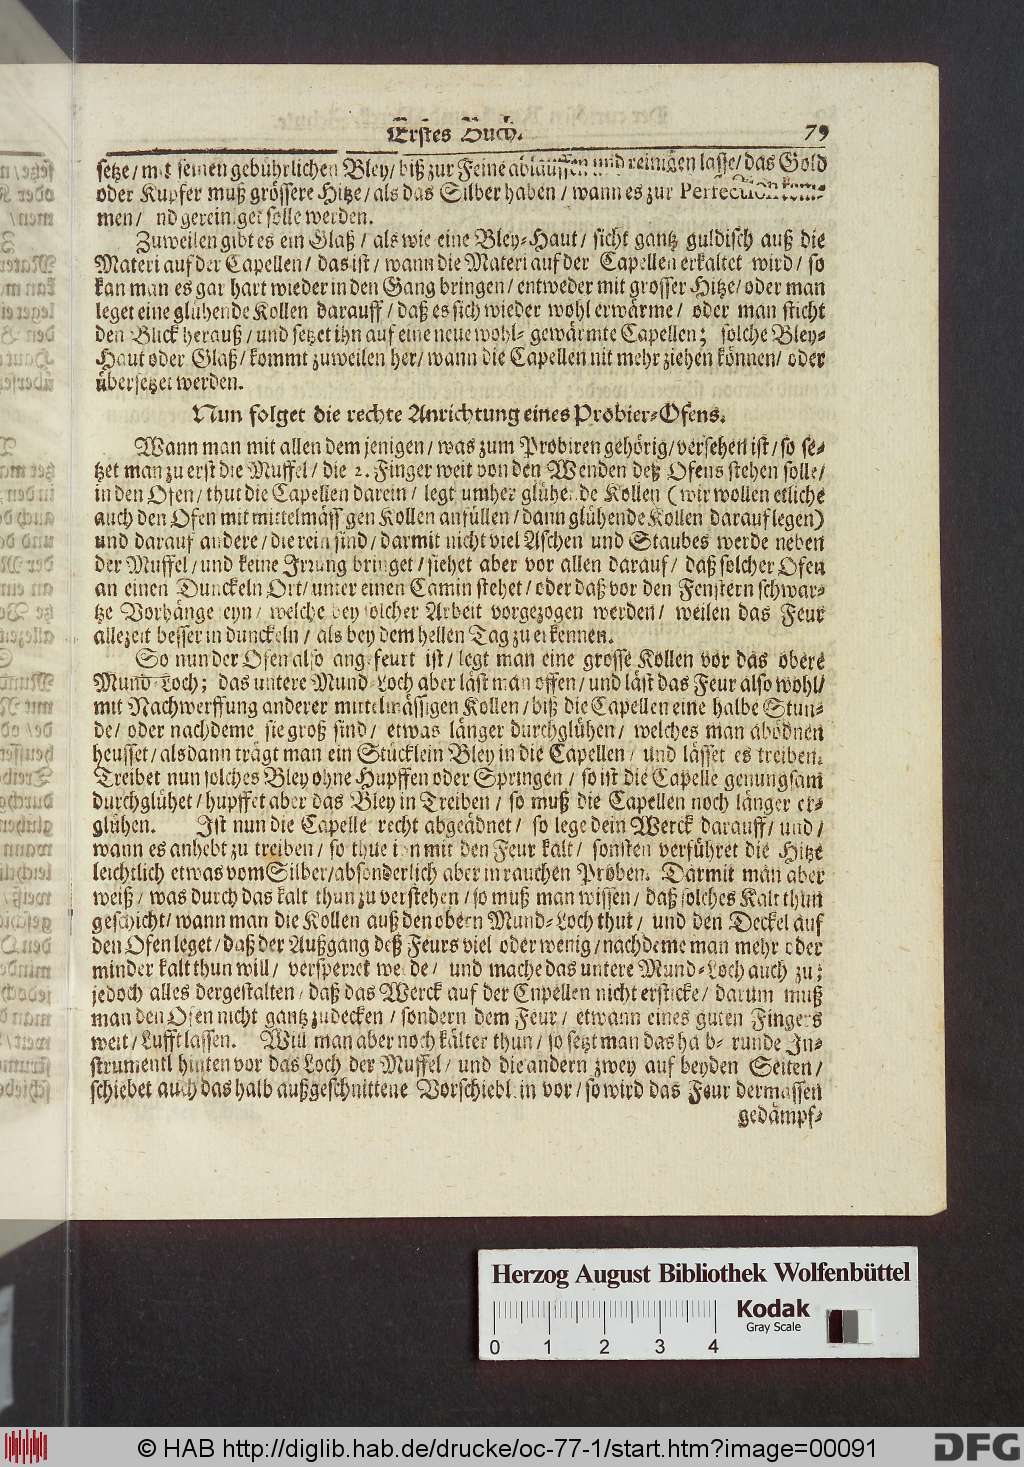 Erstes Buch. 79
setze/ mit seinen gebührlichen Bley/ biß zur Feine abläuffen und reinigen lasse/ das Gold
oder Kupfer muß grössere Hitze/ als das Silber haben/ wann es zur Perfection kom-
men/ nd gereiniget solle werden.
Zuweilen gibt es ein Glaß/ als wie eine Bley-Haut/ sicht gantz guldisch auß die
Materi auf der Capellen/ das ist/ wann die Materi auf der Capellen erkaltet wird/ so
kan man es gar hart wieder in den Gang bringen/ entweder mit grosser Hitze/ oder man
leget eine glühende Kollen darauff/ daß es sich wieder wohl erwärme/ oder man sticht
den Blick herauß/ und setzet ihn auf eine neue wohl-gewärmte Capellen; solche Bley-
Haut oder Glaß/ kommt zuweilen her/ wann die Capellen nit mehr ziehen können/ oder
übersetzet werden.
Nun folget die rechte Anrichtung eines Probier-Ofens.
Wann man mit allen dem jenigen/ was zum Probiren gehörig/ versehen ist/ so se-
tzet man zu erst die Muffel/ die 2. Finger weit von den Wenden deß Ofens stehen solle/
in den Ofen/ thut die Capellen darein/ legt umher glühende Kollen (wir wollen etliche
auch den Ofen mit mittelmässigen Kollen anfüllen/ dann glühende Kollen darauf legen)
und darauf andere/ die rein sind/ darmit nicht viel Aschen und Staubes werde neben
der Muffel/ und keine Irrung bringet/ siehet aber vor allen darauf/ daß solcher Ofen
an einen Dunckeln Ort/ unter einen Camin stehet/ oder daß vor den Fenstern schwar-
tze Vorhänge seyn/ welche bey solcher Arbeit vorgezogen werden/ weilen das Feur
allezeit besser in dunckeln/ als bey dem hellen Tag zu erkennen.
So nun der Ofen also angefeurt ist/ legt man eine grosse Kollen vor das obere
Mund-Loch; das untere Mund-Loch aber läst man offen/ und läst das Feur also wohl/
mit Nachwerffung anderer mittelmässigen Kollen/ biß die Capellen eine halbe Stun-
de/ oder nachdeme sie groß sind/ etwas länger durchglühen/ welches man abödnen
heusset/ alsdann trägt man ein Stücklein Bley in die Capellen/ und lässet es treiben.
Treibet nun solches Bley ohne Hupffen oder Springen/ so ist die Capelle genungsam
durchglühet/ hupffet aber das Bley in Treiben/ so muß die Capellen noch länger er-
glühen. Ist nun die Capelle recht abgeädnet/ so lege dein Werck darauff/ und/
wann es anhebt zu treiben/ so thue ihn mit den Feur kalt/ sonsten verführet die Hitze
leichtlich etwas vom Silber/ absonderlich aber in rauchen Proben. Darmit man aber
weiß/ was durch das kalt thun zu verstehen/ so muß man wissen/ daß solches Kalt thun
geschicht/ wann man die Kollen auß den obern Mund-Loch thut/ und den Deckel auf
den Ofen leget/ daß der Außgang deß Feurs viel oder wenig/ nachdeme man mehr oder
minder kalt thun will/ versperret werde/ und mache das untere Mund-Loch auch zu;
jedoch alles dergestalten/ daß das Werck auf der Cupellen nicht ersticke/ darum muß
man den Ofen nicht gantz zudecken/ sondern dem Feur/ etwann eines guten Fingers
weit/ Lufft lassen. Will man aber noch kälter thun/ so setzt man das halb-runde In-
strumentl hinten vor das Loch der Muffel/ und die andern zwey auf beyden Seiten/
schiebet auch das halb außgeschnittene Vorschieblein vor/ so wird das Feur dermassen
gedämpf-
Herzog August Bibliothek Wolfenbüttel
Kodak
Gray Scale
0 1 2 3 4
© HAB http://diglib.hab.de/drucke/oc-77-1/start.htm?image=00091
DFG